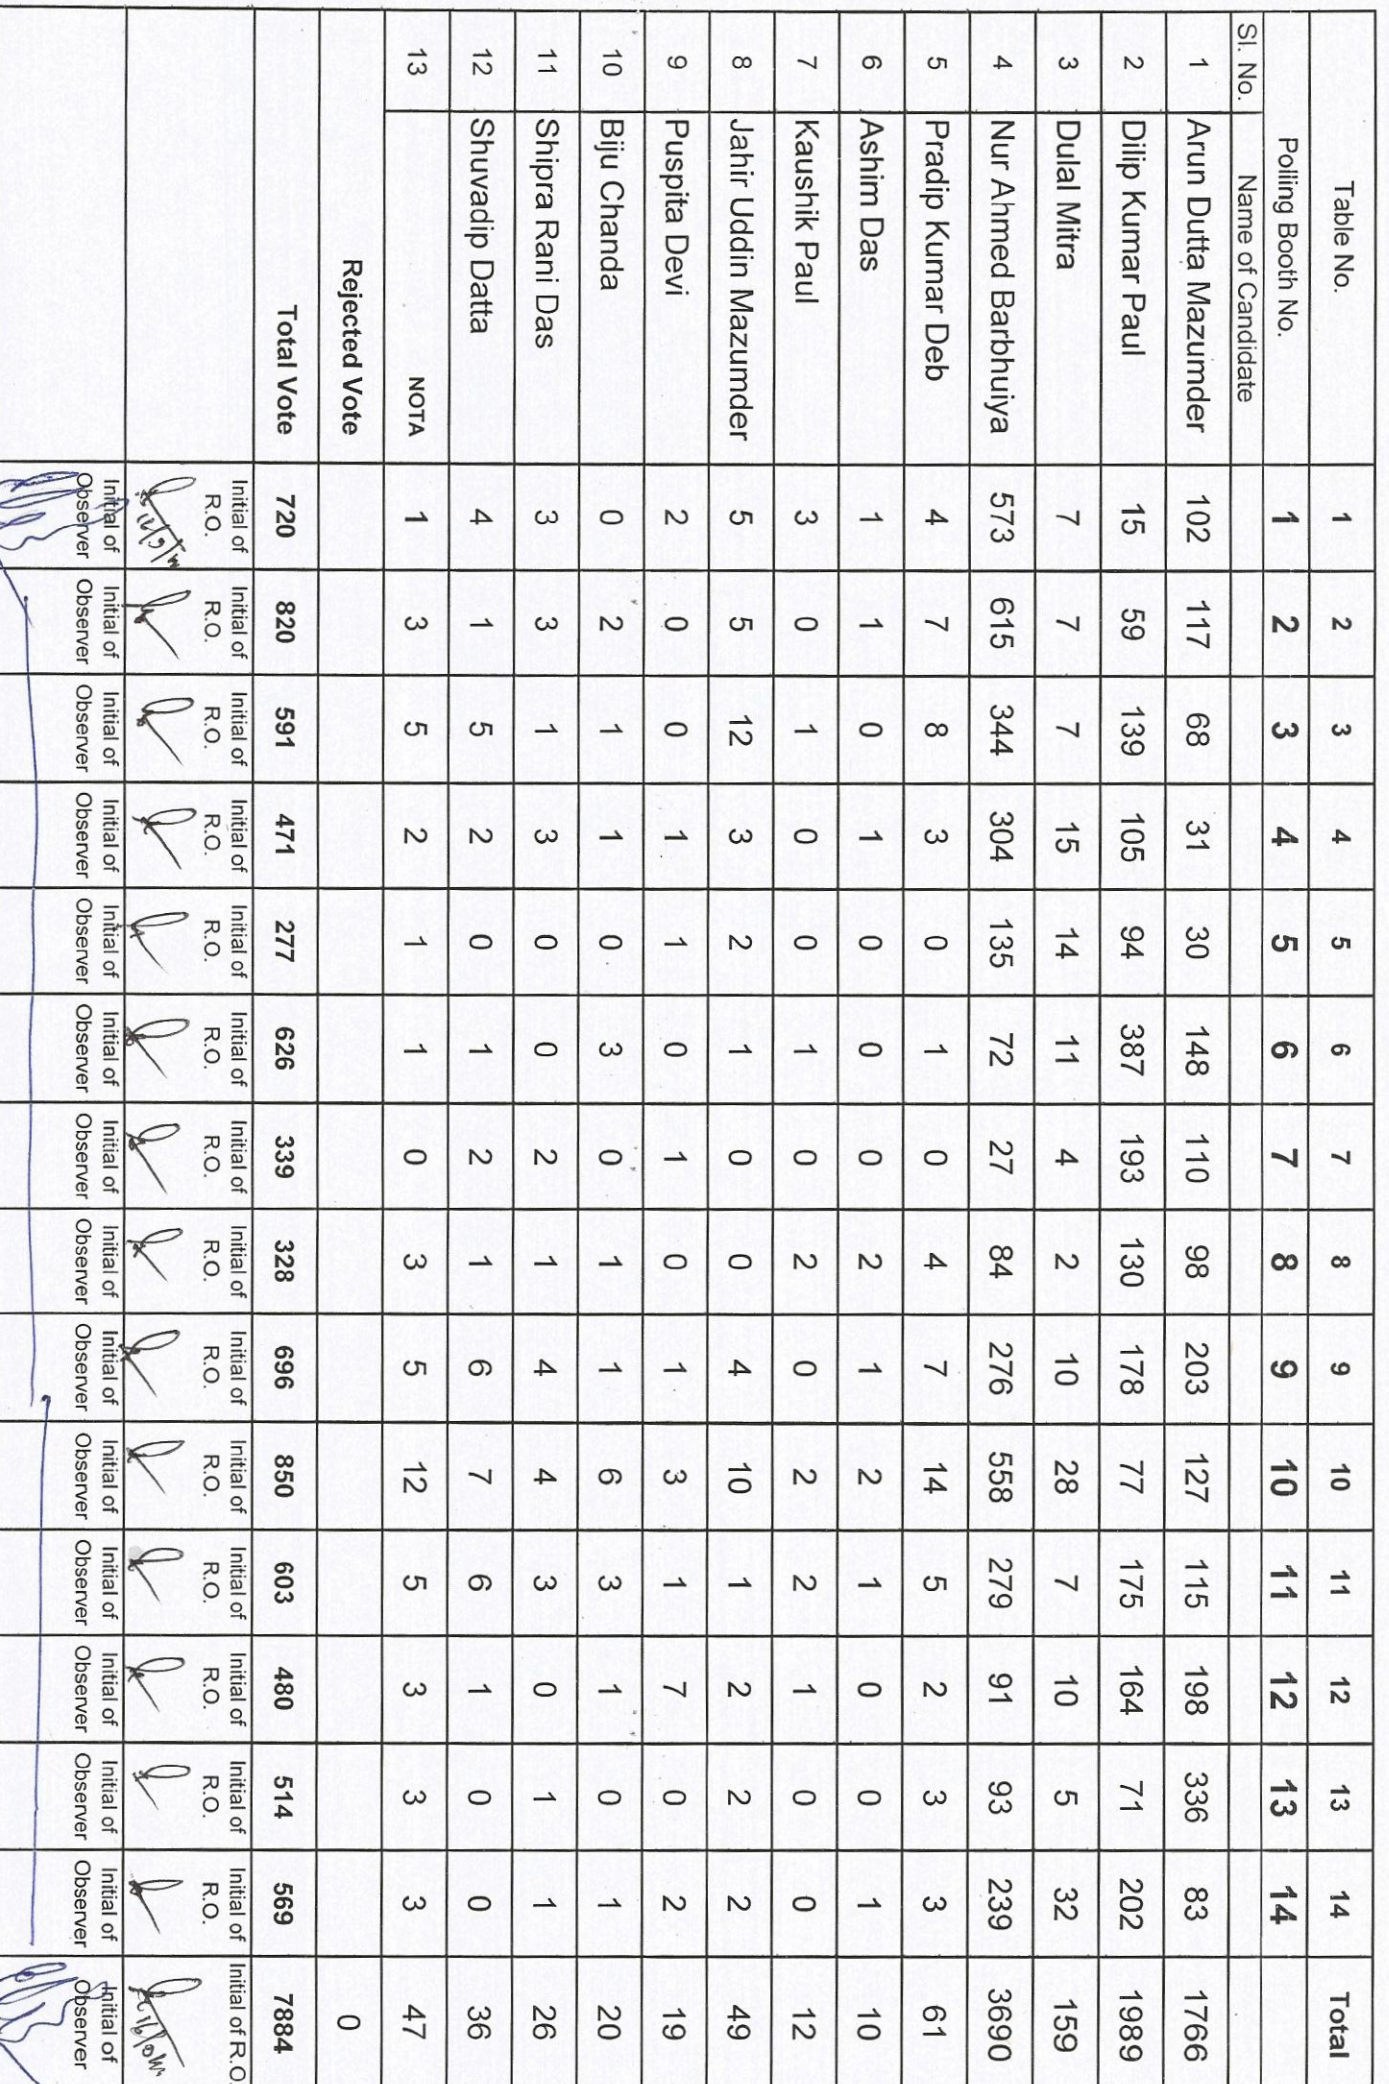 Table No. 1 2 3 4 5 6 7 8 9 10 11 12 13 14 Total
Polling Booth No. 1 2 3 4 5 6 7 8 9 10 11 12 13 14
Sl. No. Name of Candidate
1 Arun Dutta Mazumder 102 117 68 31 30 148 110 98 203 127 115 198 336 83 1766
2 Dilip Kumar Paul 15 59 139 105 94 387 193 130 178 77 175 164 71 202 1989
3 Dulal Mitra 7 7 7 15 14 11 4 2 10 28 7 10 5 32 159
4 Nur Ahmed Barbhuiya 573 615 344 304 135 72 27 84 276 558 279 91 93 239 3690
5 Pradip Kumar Deb 4 7 8 3 0 1 0 4 7 14 5 2 3 3 61
6 Ashim Das 1 1 0 1 0 0 0 2 1 2 1 0 0 1 10
7 Kaushik Paul 3 0 1 0 0 1 0 2 0 2 2 1 0 0 12
8 Jahir Uddin Mazumder 5 5 12 3 2 1 0 0 4 10 1 2 2 2 49
9 Puspita Devi 2 0 0 1 1 0 1 0 1 3 1 7 0 2 19
10 Biju Chanda 0 2 1 1 0 3 0 1 1 6 3 1 0 1 20
11 Shipra Rani Das 3 3 1 3 0 0 2 1 4 4 3 0 1 1 26
12 Shuvadip Datta 4 1 5 2 0 1 2 1 6 7 6 1 0 0 36
13 NOTA 1 3 5 2 1 1 0 3 5 12 5 3 3 3 47
Rejected Vote 0
Total Vote 720 820 591 471 277 626 339 328 696 850 603 480 514 569 7884
Initial of Initial of Initial of Initial of Initial of Initial of Initial of Initial of Initial of Initial of Initial of Initial of Initial of Initial of Initial of R.O.
R.O. R.O. R.O. R.O. R.O. R.O. R.O. R.O. R.O. R.O. R.O. R.O. R.O. R.O.
Initial of Initial of Initial of Initial of Initial of Initial of Initial of Initial of Initial of Initial of Initial of Initial of Initial of Initial of Initial of
Observer Observer Observer Observer Observer Observer Observer Observer Observer Observer Observer Observer Observer Observer Observer